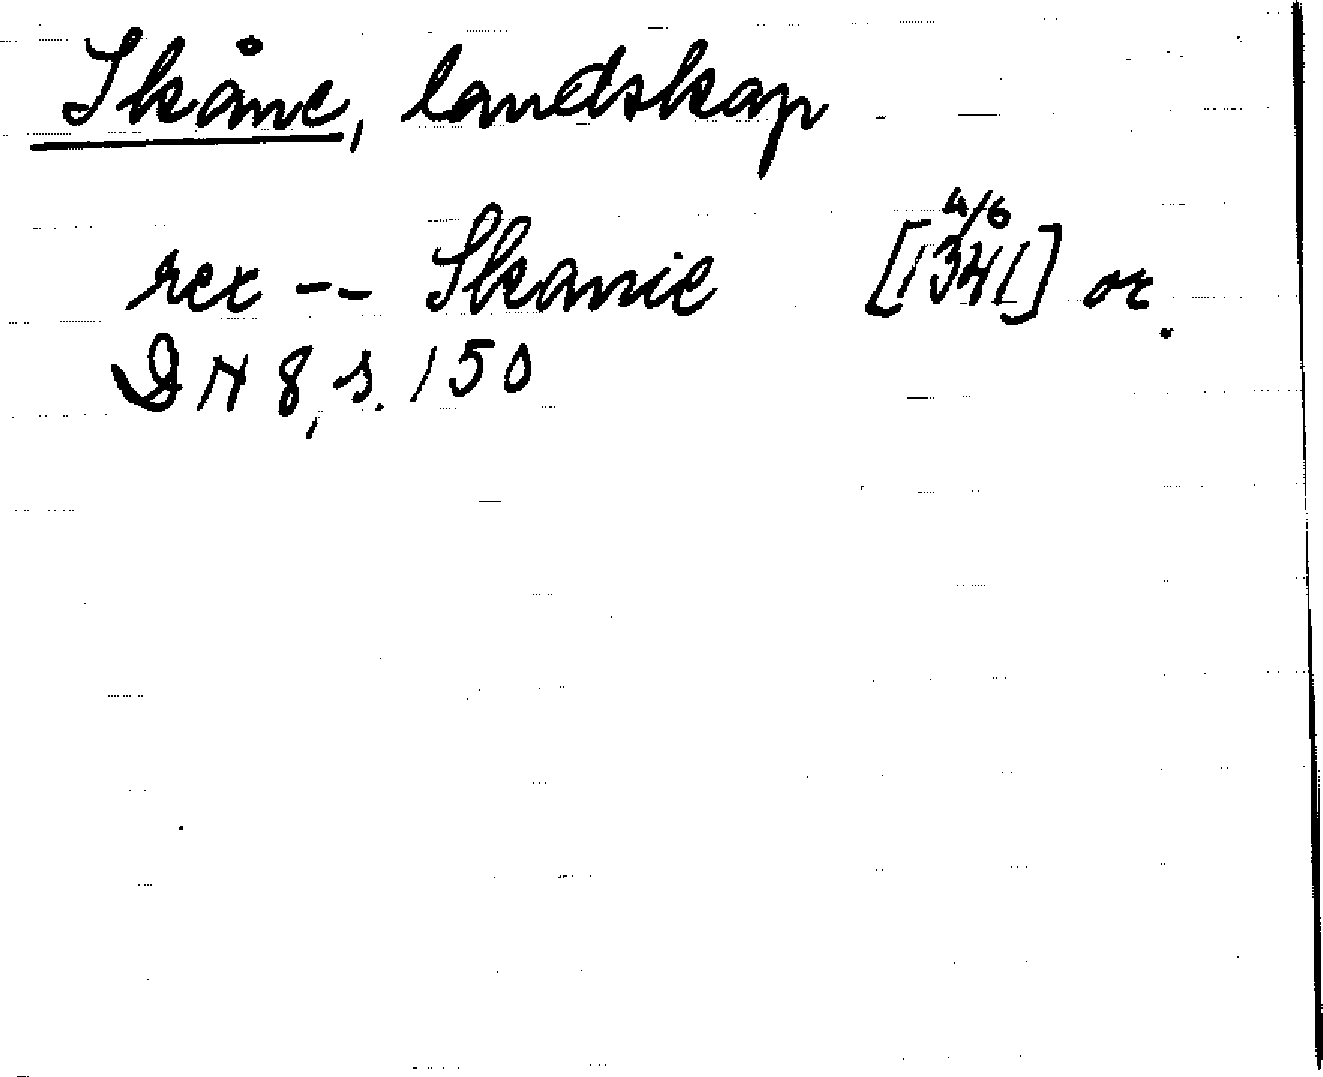 Skåne, landskap
rex -- Skanie [1341] 4/6 or.
DN 8, s. 150